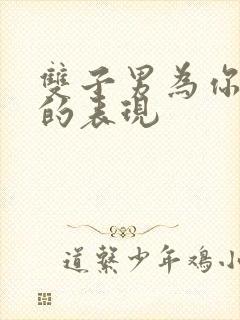 雙子男為你
的表現
道繫少年鳮小